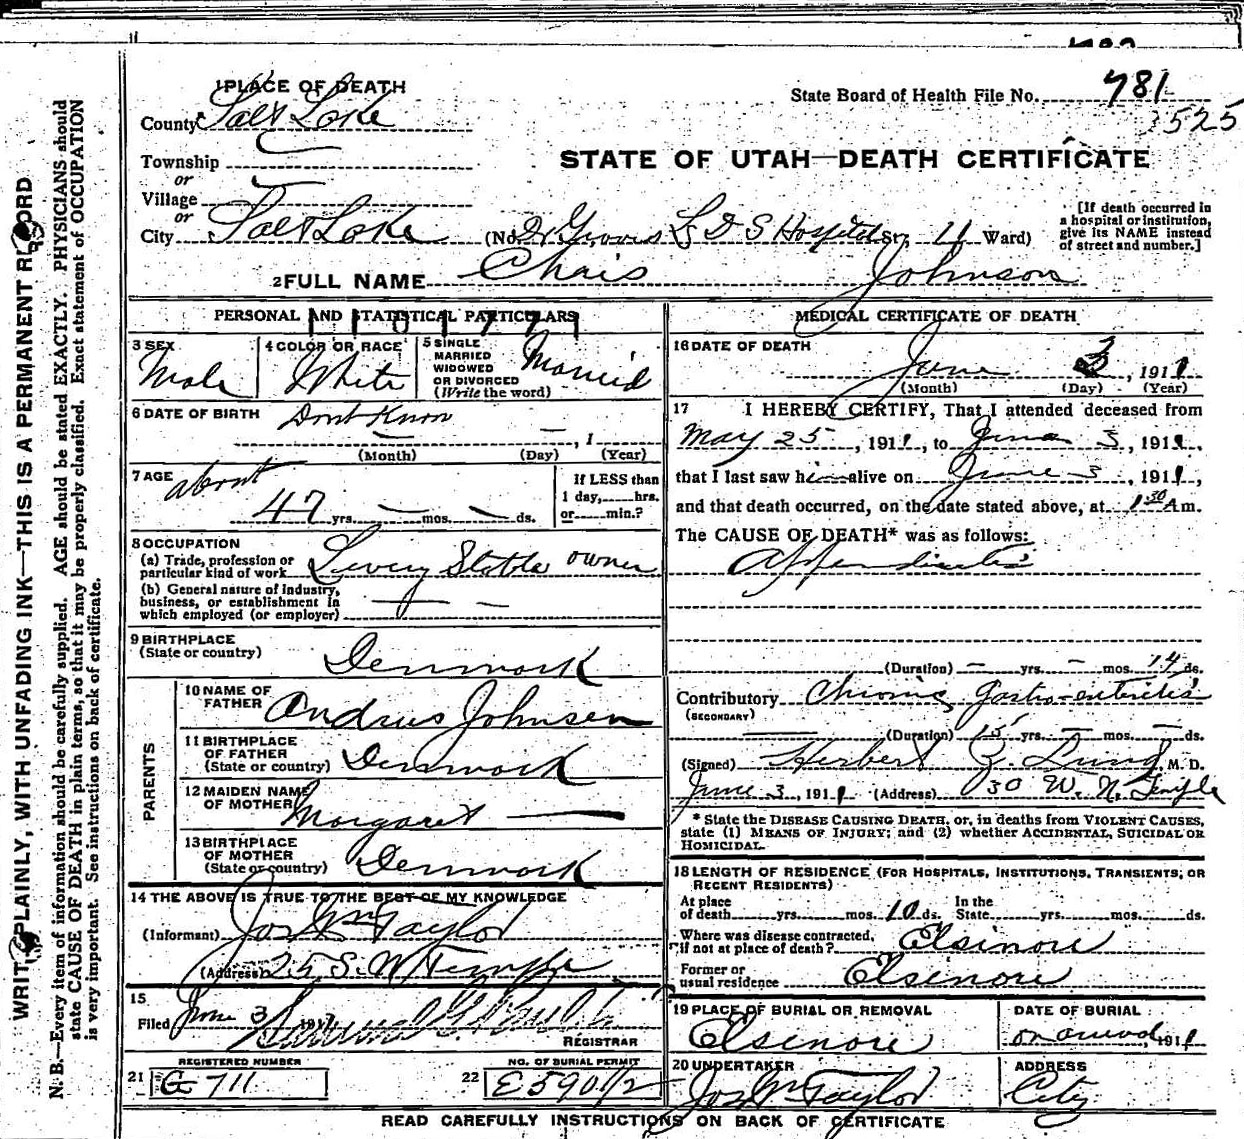 1 PLACE OF DEATH
State Board of Health File No. 781
3525
County Salt Lake
STATE OF UTAH—DEATH CERTIFICATE
Township
or
Village
or
City Salt Lake (No. Dr Groves L D S Hospital St. 11 Ward)
[If death occurred in
a hospital or institution,
give its NAME instead
of street and number.]
2 FULL NAME Chris Johnson
PERSONAL AND STATISTICAL PARTICULARS
3 SEX
Male
4 COLOR OR RACE
White
5 SINGLE
MARRIED
WIDOWED
OR DIVORCED
(Write the word)
Married
6 DATE OF BIRTH Dont Know
, 1
(Month) (Day) (Year)
7 AGE about
47 yrs. — mos. — ds.
If LESS than
1 day, hrs.
or min.?
8 OCCUPATION
(a) Trade, profession or
particular kind of work Livery Stable owner
(b) General nature of industry,
business, or establishment in
which employed (or employer) — —
9 BIRTHPLACE
(State or country) Denmark
PARENTS
10 NAME OF
FATHER Andrus Johnsen
11 BIRTHPLACE
OF FATHER
(State or country) Denmark
12 MAIDEN NAME
OF MOTHER Margaret —
13 BIRTHPLACE
OF MOTHER
(State or country) Denmark
14 THE ABOVE IS TRUE TO THE BEST OF MY KNOWLEDGE
(Informant) Jos Wm Taylor
(Address) 25 S. W Temple
15
Filed June 3 191
REGISTRAR
REGISTERED NUMBER
21 G 711
NO. OF BURIAL PERMIT
22 E5901/2
MEDICAL CERTIFICATE OF DEATH
16 DATE OF DEATH
June 3, 1911
(Month) (Day) (Year)
17 I HEREBY CERTIFY, That I attended deceased from
May 25, 1911, to June 3, 1911,
that I last saw him alive on June 3, 1911,
and that death occurred, on the date stated above, at 1 30 A m.
The CAUSE OF DEATH* was as follows:
Appendicitis
(Duration) — yrs. — mos. 14 ds.
Contributory Chronic Gastro-enteritis
(SECONDARY)
(Duration) 15 yrs. — mos. — ds.
(Signed) Herbert M. D.
June 3, 1911 (Address) 30 W. N. Temple
* State the DISEASE CAUSING DEATH, or, in deaths from VIOLENT CAUSES,
state (1) MEANS OF INJURY; and (2) whether ACCIDENTAL, SUICIDAL OR
HOMICIDAL.
18 LENGTH OF RESIDENCE (FOR HOSPITALS, INSTITUTIONS, TRANSIENTS, OR
RECENT RESIDENTS)
At place
of death yrs. mos. 10 ds.
In the
State yrs. mos. ds.
Where was disease contracted,
if not at place of death? Elsinore
Former or
usual residence Elsinore
19 PLACE OF BURIAL OR REMOVAL
Elsinore
DATE OF BURIAL
on arrival, 1911
20 UNDERTAKER
Jos Wm Taylor
ADDRESS
City
READ CAREFULLY INSTRUCTIONS ON BACK OF CERTIFICATE
WRITE PLAINLY, WITH UNFADING INK—THIS IS A PERMANENT RECORD
N. B.—Every item of information should be carefully supplied. AGE should be stated EXACTLY. PHYSICIANS should
state CAUSE OF DEATH in plain terms, so that it may be properly classified. Exact statement of OCCUPATION
is very important. See instructions on back of certificate.